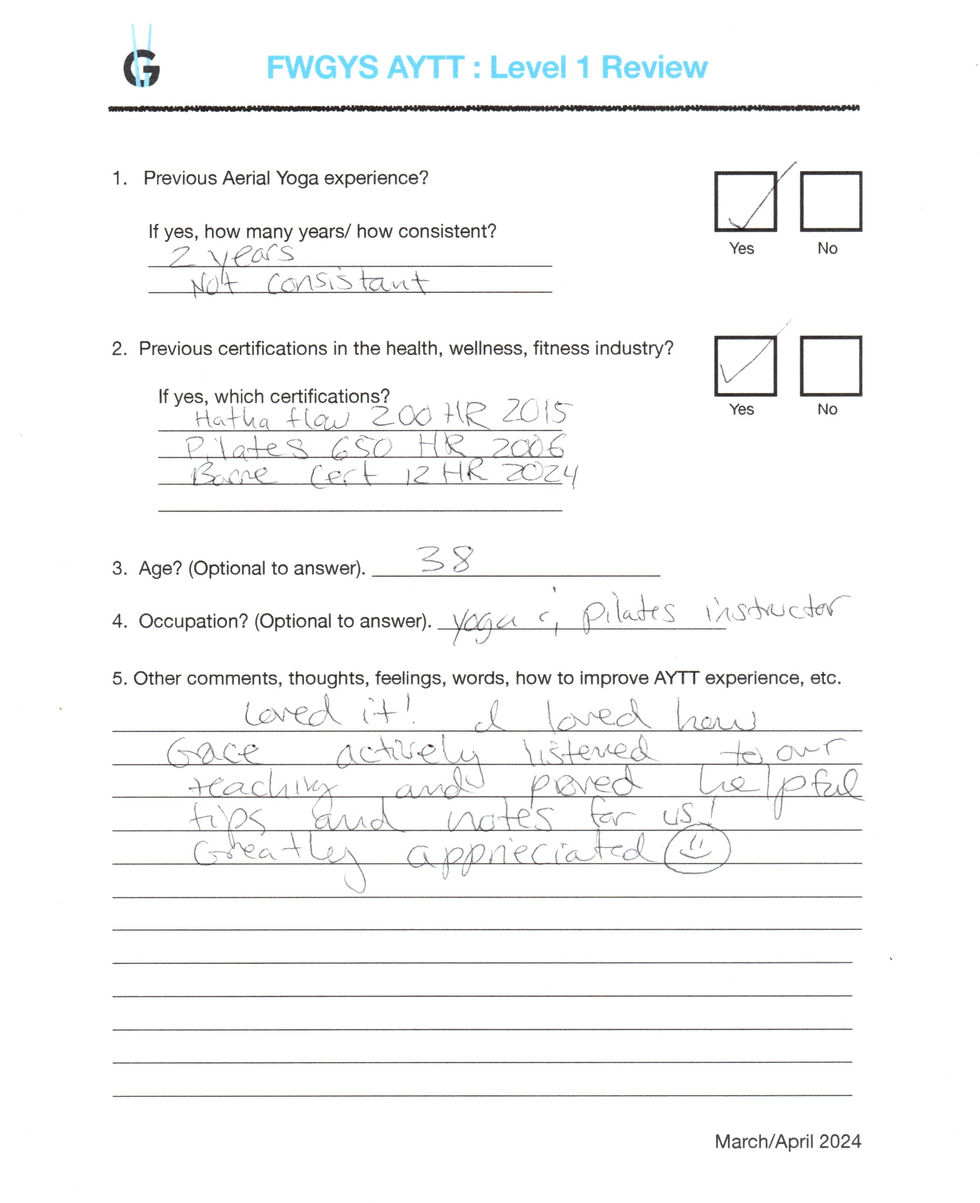 G
FWGYS AYTT : Level 1 Review
1. Previous Aerial Yoga experience?
If yes, how many years/ how consistent?
2 years
Not consistant
Yes No
2. Previous certifications in the health, wellness, fitness industry?
If yes, which certifications?
Hatha flow 200 HR 2015
Pilates 650 HR 2006
Barre Cert 12 HR 2024
Yes No
3. Age? (Optional to answer). 38
4. Occupation? (Optional to answer). yoga & pilates instructor
5. Other comments, thoughts, feelings, words, how to improve AYTT experience, etc.
Loved it! I loved how
Gace actively listened to our
teaching and proved helpful
tips and notes for us!
Greatley apprieciated
March/April 2024